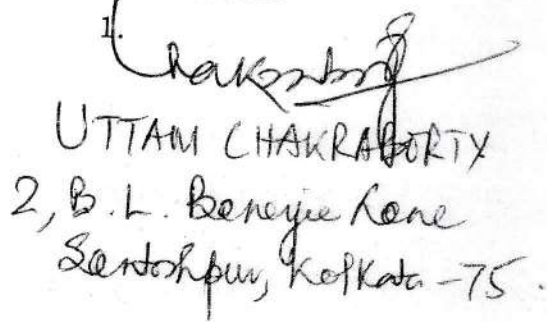 1.
Chakraborty
UTTAM CHAKRABORTY
2, B. L. Banerjee Lane
Santoshpur, Kolkata - 75.